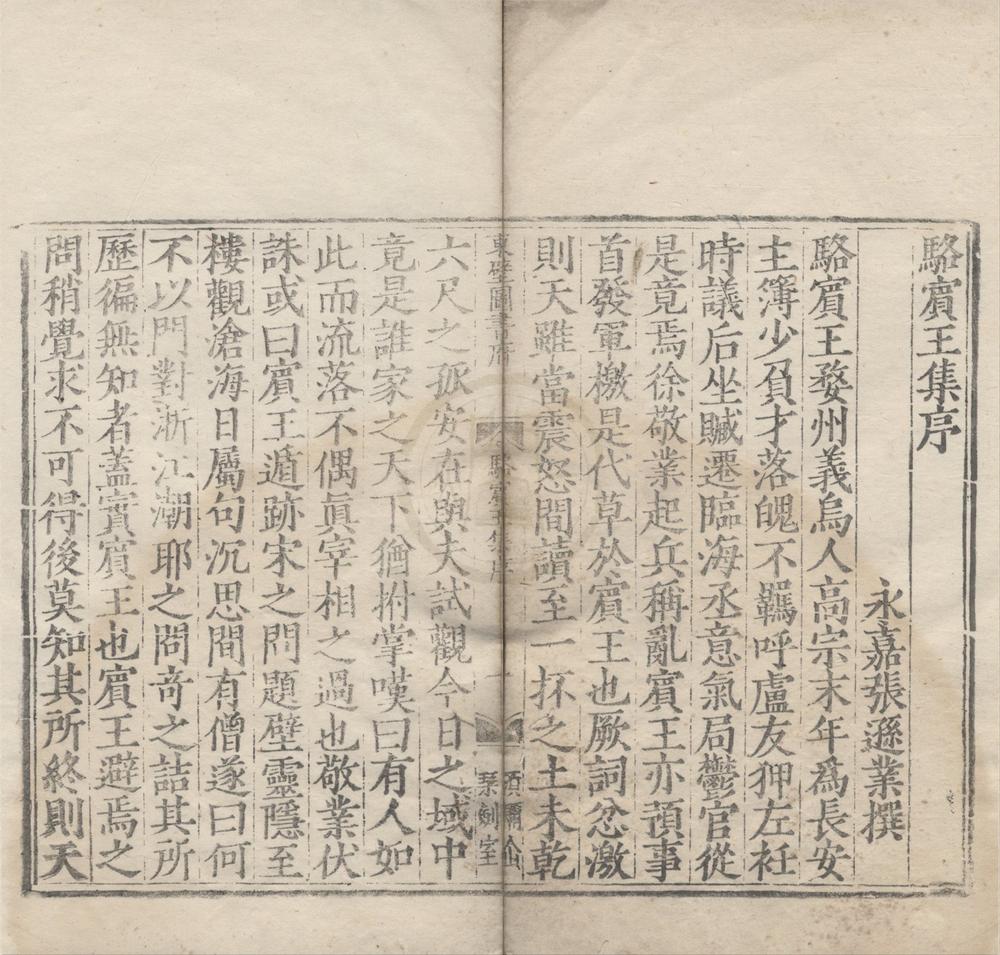 駱賓王集序
永嘉張遜業撰
駱賓王婺州義烏人高宗末年爲長安
主簿少負才落魄不羈呼盧友狎左衽
時議后坐贓遷臨海丞意氣局鬱官從
是竟焉徐敬業起兵稱亂賓王亦預事
首發軍檄是代草於賓王也厥詞忿激
則天雖當震怒間讀至一抔之土未乾
東壁圖書府
駱賓王集序
一
琴劍室
六尺之孤安在與夫試觀今日之域中
竟是誰家之天下猶拊掌嘆曰有人如
此而流落不偶眞宰相之過也敬業伏
誅或曰賓王遁跡宋之問題壁靈隱至
樓觀滄海日屬句沉思間有僧遂曰何
不以門對浙江潮耶之問奇之詰其所
歷徧無知者蓋實賓王也賓王避焉之
問稍覺求不可得後莫知其所終則天